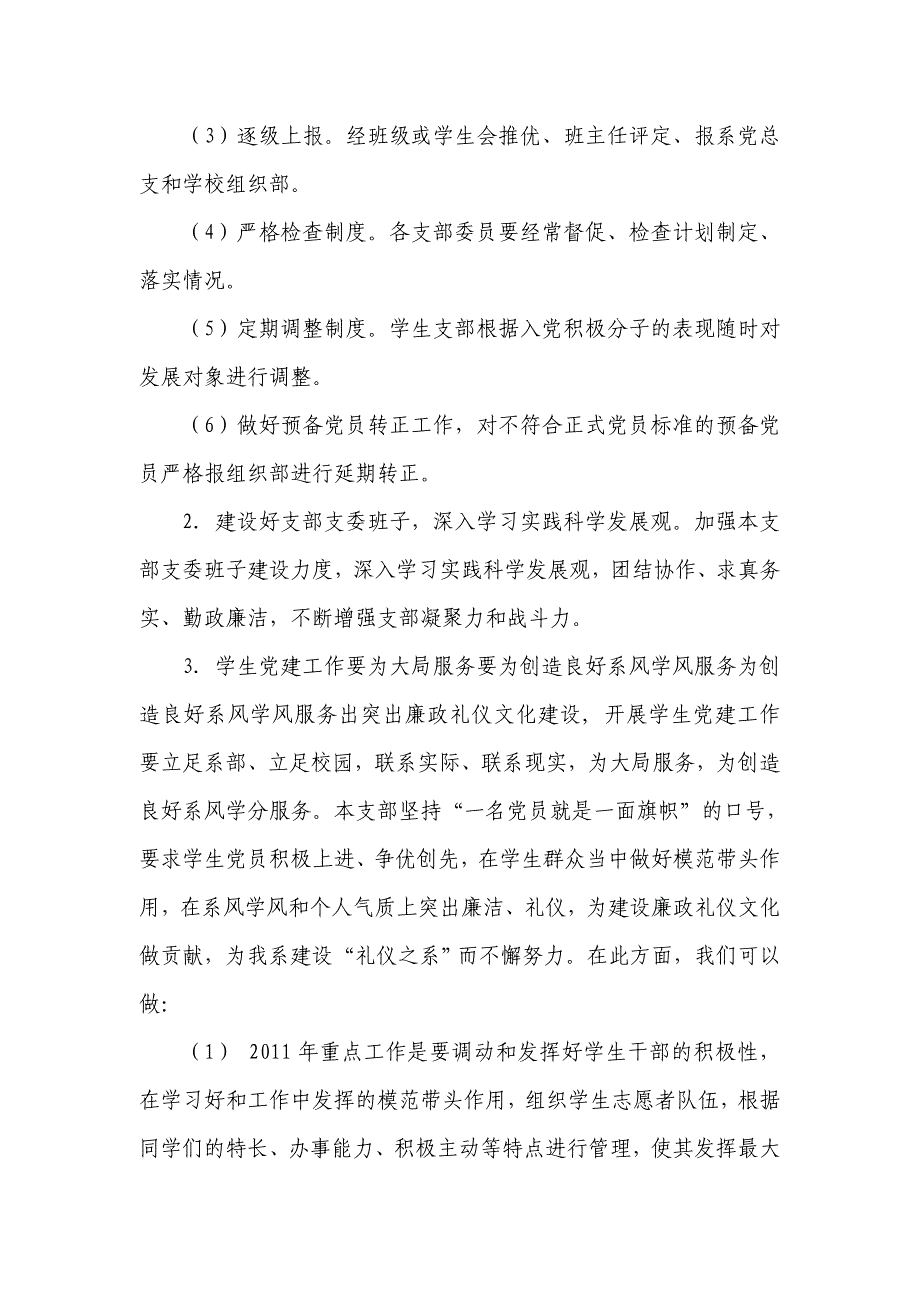 （3）逐级上报。经班级或学生会推优、班主任评定、报系党总
支和学校组织部。
（4）严格检查制度。各支部委员要经常督促、检查计划制定、
落实情况。
（5）定期调整制度。学生支部根据入党积极分子的表现随时对
发展对象进行调整。
（6）做好预备党员转正工作，对不符合正式党员标准的预备党
员严格报组织部进行延期转正。
2. 建设好支部支委班子，深入学习实践科学发展观。加强本支
部支委班子建设力度，深入学习实践科学发展观，团结协作、求真务
实、勤政廉洁，不断增强支部凝聚力和战斗力。
3. 学生党建工作要为大局服务要为创造良好系风学风服务为创
造良好系风学风服务出突出廉政礼仪文化建设, 开展学生党建工作
要立足系部、立足校园，联系实际、联系现实，为大局服务，为创造
良好系风学分服务。本支部坚持“一名党员就是一面旗帜”的口号，
要求学生党员积极上进、争优创先，在学生群众当中做好模范带头作
用，在系风学风和个人气质上突出廉洁、礼仪，为建设廉政礼仪文化
做贡献，为我系建设“礼仪之系”而不懈努力。在此方面，我们可以
做:
（1） 2011年重点工作是要调动和发挥好学生干部的积极性，
在学习好和工作中发挥的模范带头作用，组织学生志愿者队伍，根据
同学们的特长、办事能力、积极主动等特点进行管理，使其发挥最大